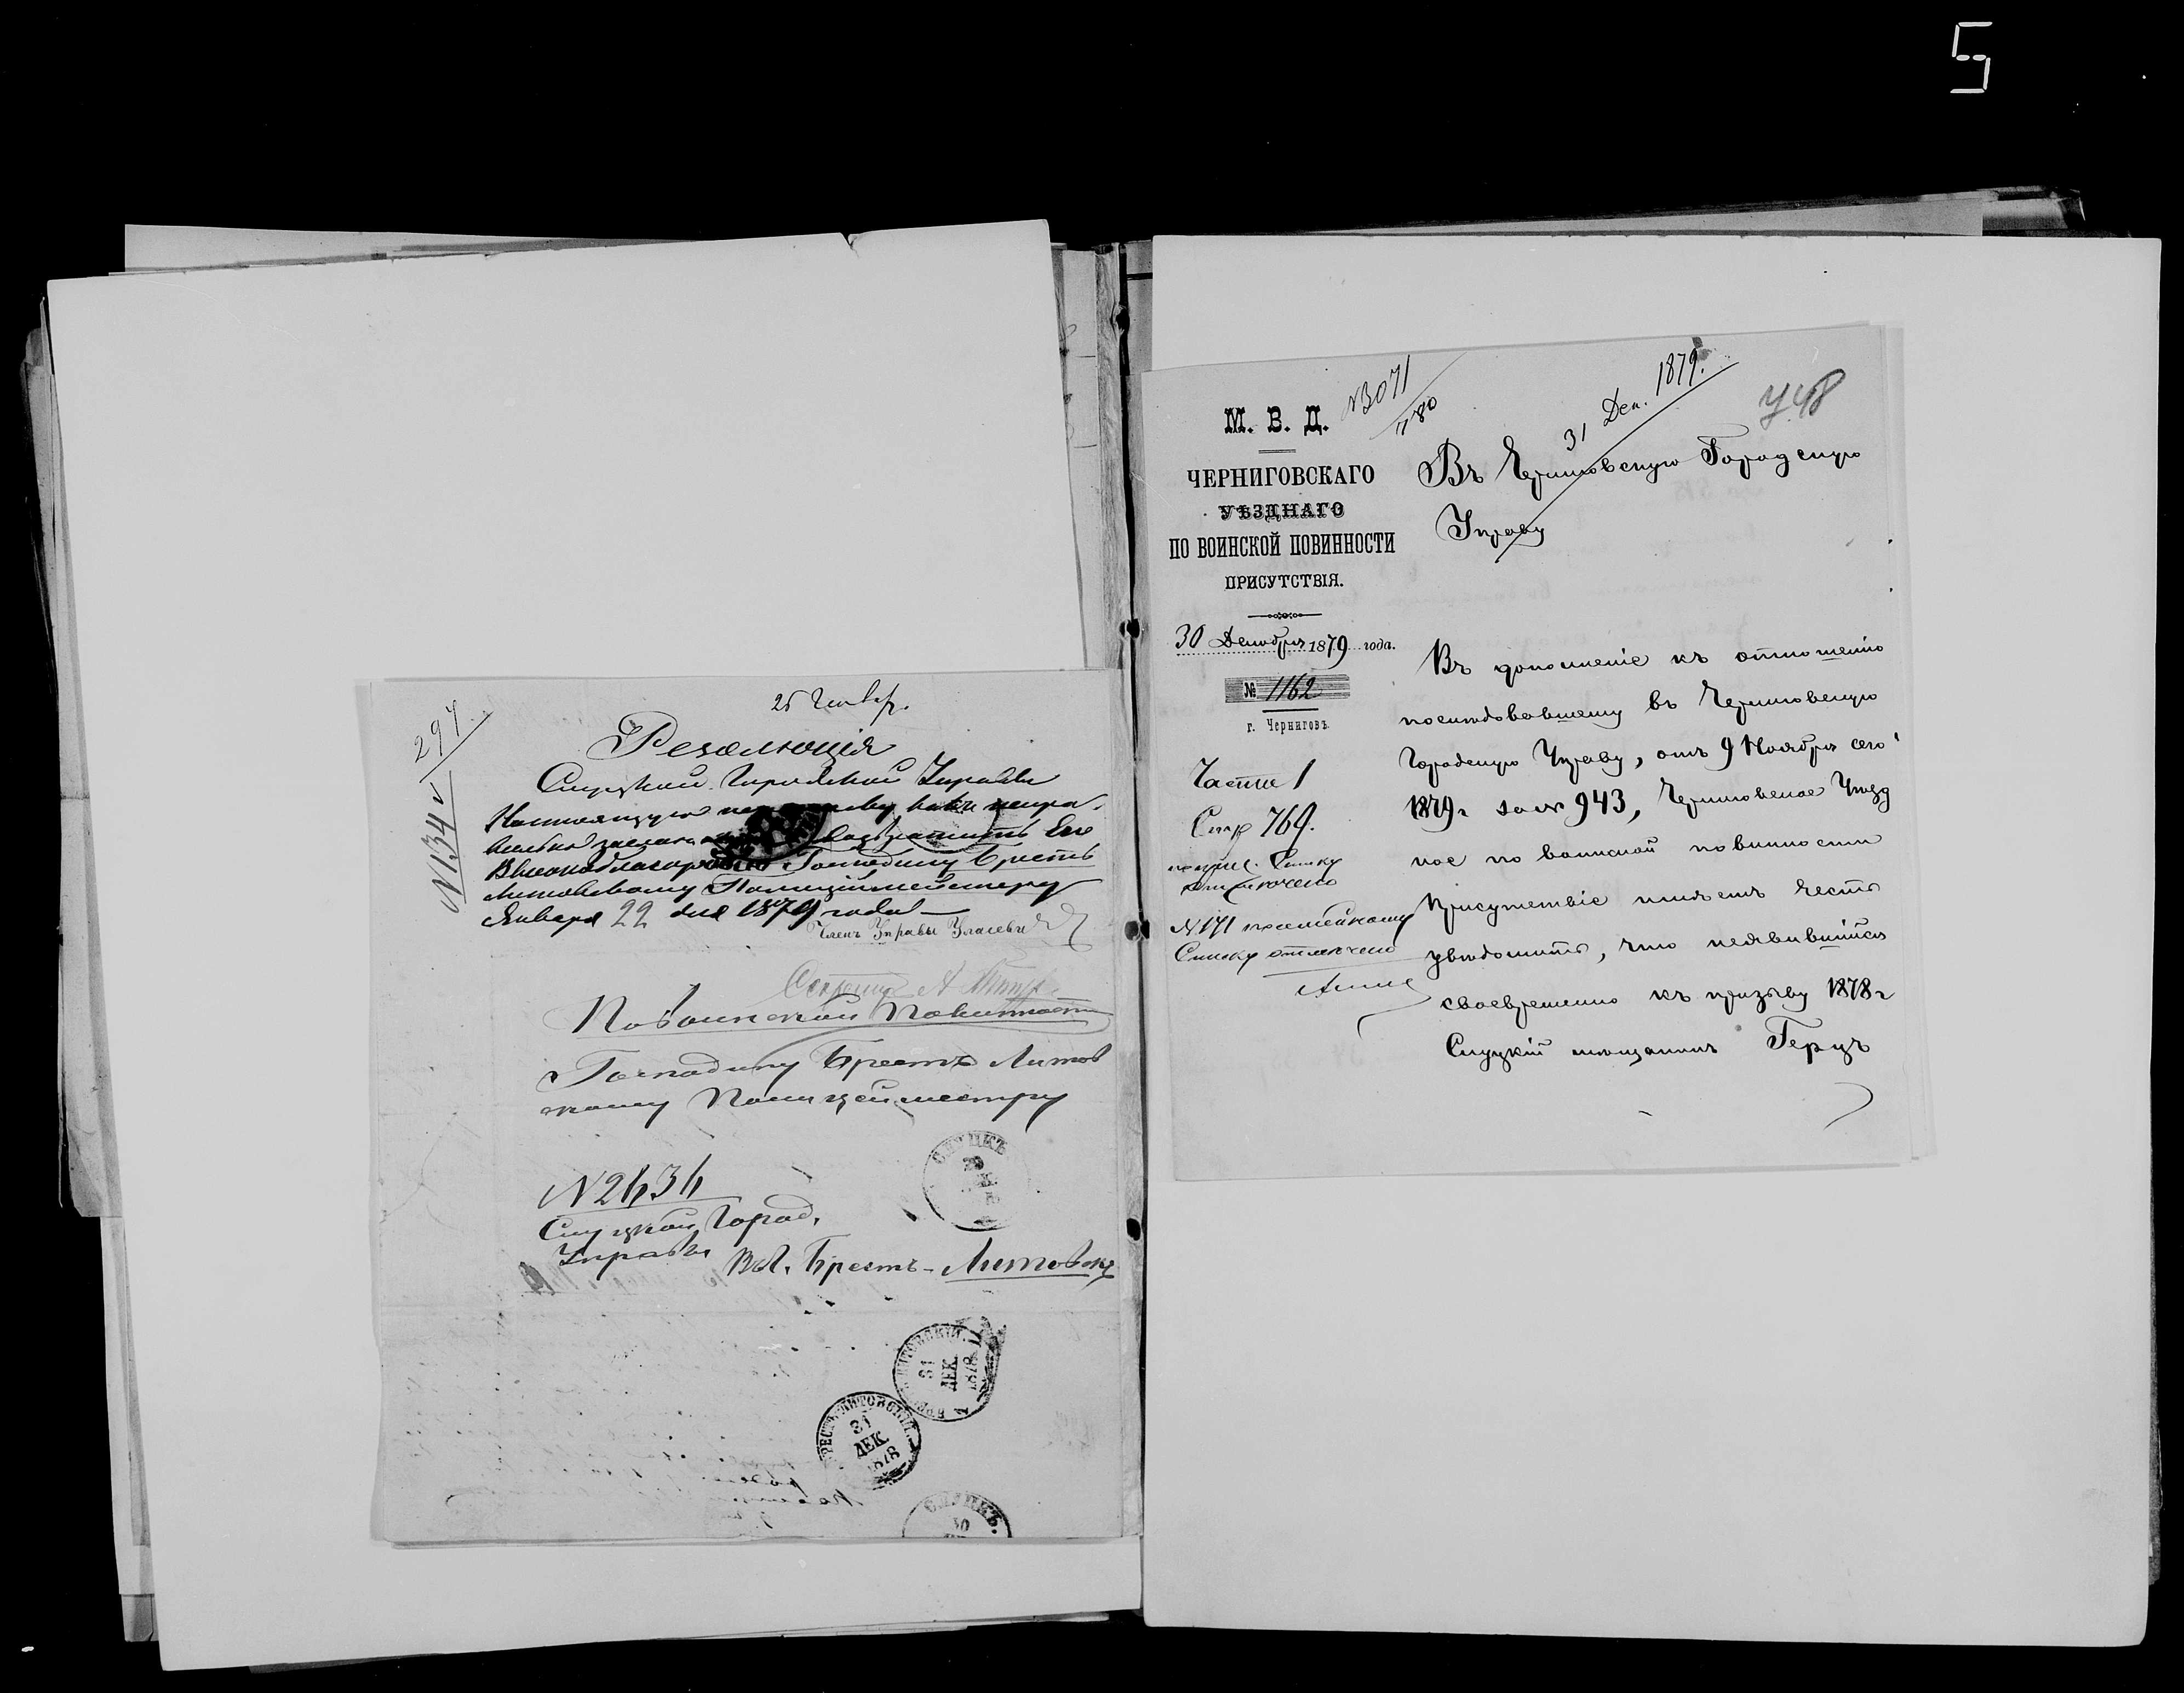 5
25 Январ.
297
N134
Резолюція
Слуцкой Городской Управы
Настоящую
возвратить Его
Высокоблагородію Господину Брестъ
Литовскому Полиціймейстеру
Января 22 дня 1879 года
Членъ Управы
Секретарь
По воинской повинности
Господину Брестъ Литов
скому Полицеймейстру
N2434
Слуцкой Город.
Управы
В г. Брестъ-Литовскъ
СЛУЦКЪ
ЛИТОВСКІЙ
31
ДЕК.
1878
БРЕСТЪ ЛИТОВСКІЙ
31
ДЕК.
1878
СЛУЦКЪ.
30
М. В. Д.
N3071
780
31 Дек. 1879.
У.48
ЧЕРНИГОВСКАГО
УѢЗДНАГО
ПО ВОИНСКОЙ ПОВИННОСТИ
ПРИСУТСТВІЯ.
30 Декабря 1879 года.
№ 1162
г. Черниговъ.
Части 1
Стр 769.
списку
отмѣчено
N171 посемейному
Списку отмѣчено
Въ Черниговскую Городскую
Управу
Въ дополненіе къ отношенію
послѣдовавшему въ Черниговскую
Городскую Управу, отъ 9 Ноября сего
1879 г за № 943, Черниговское Уѣзд
ное по воинской повинности
Присутствіе имѣетъ честь
увѣдомить, что неявившійся
своевременно къ призыву 1878 г
Слуцкій мѣщанинъ Герцъ